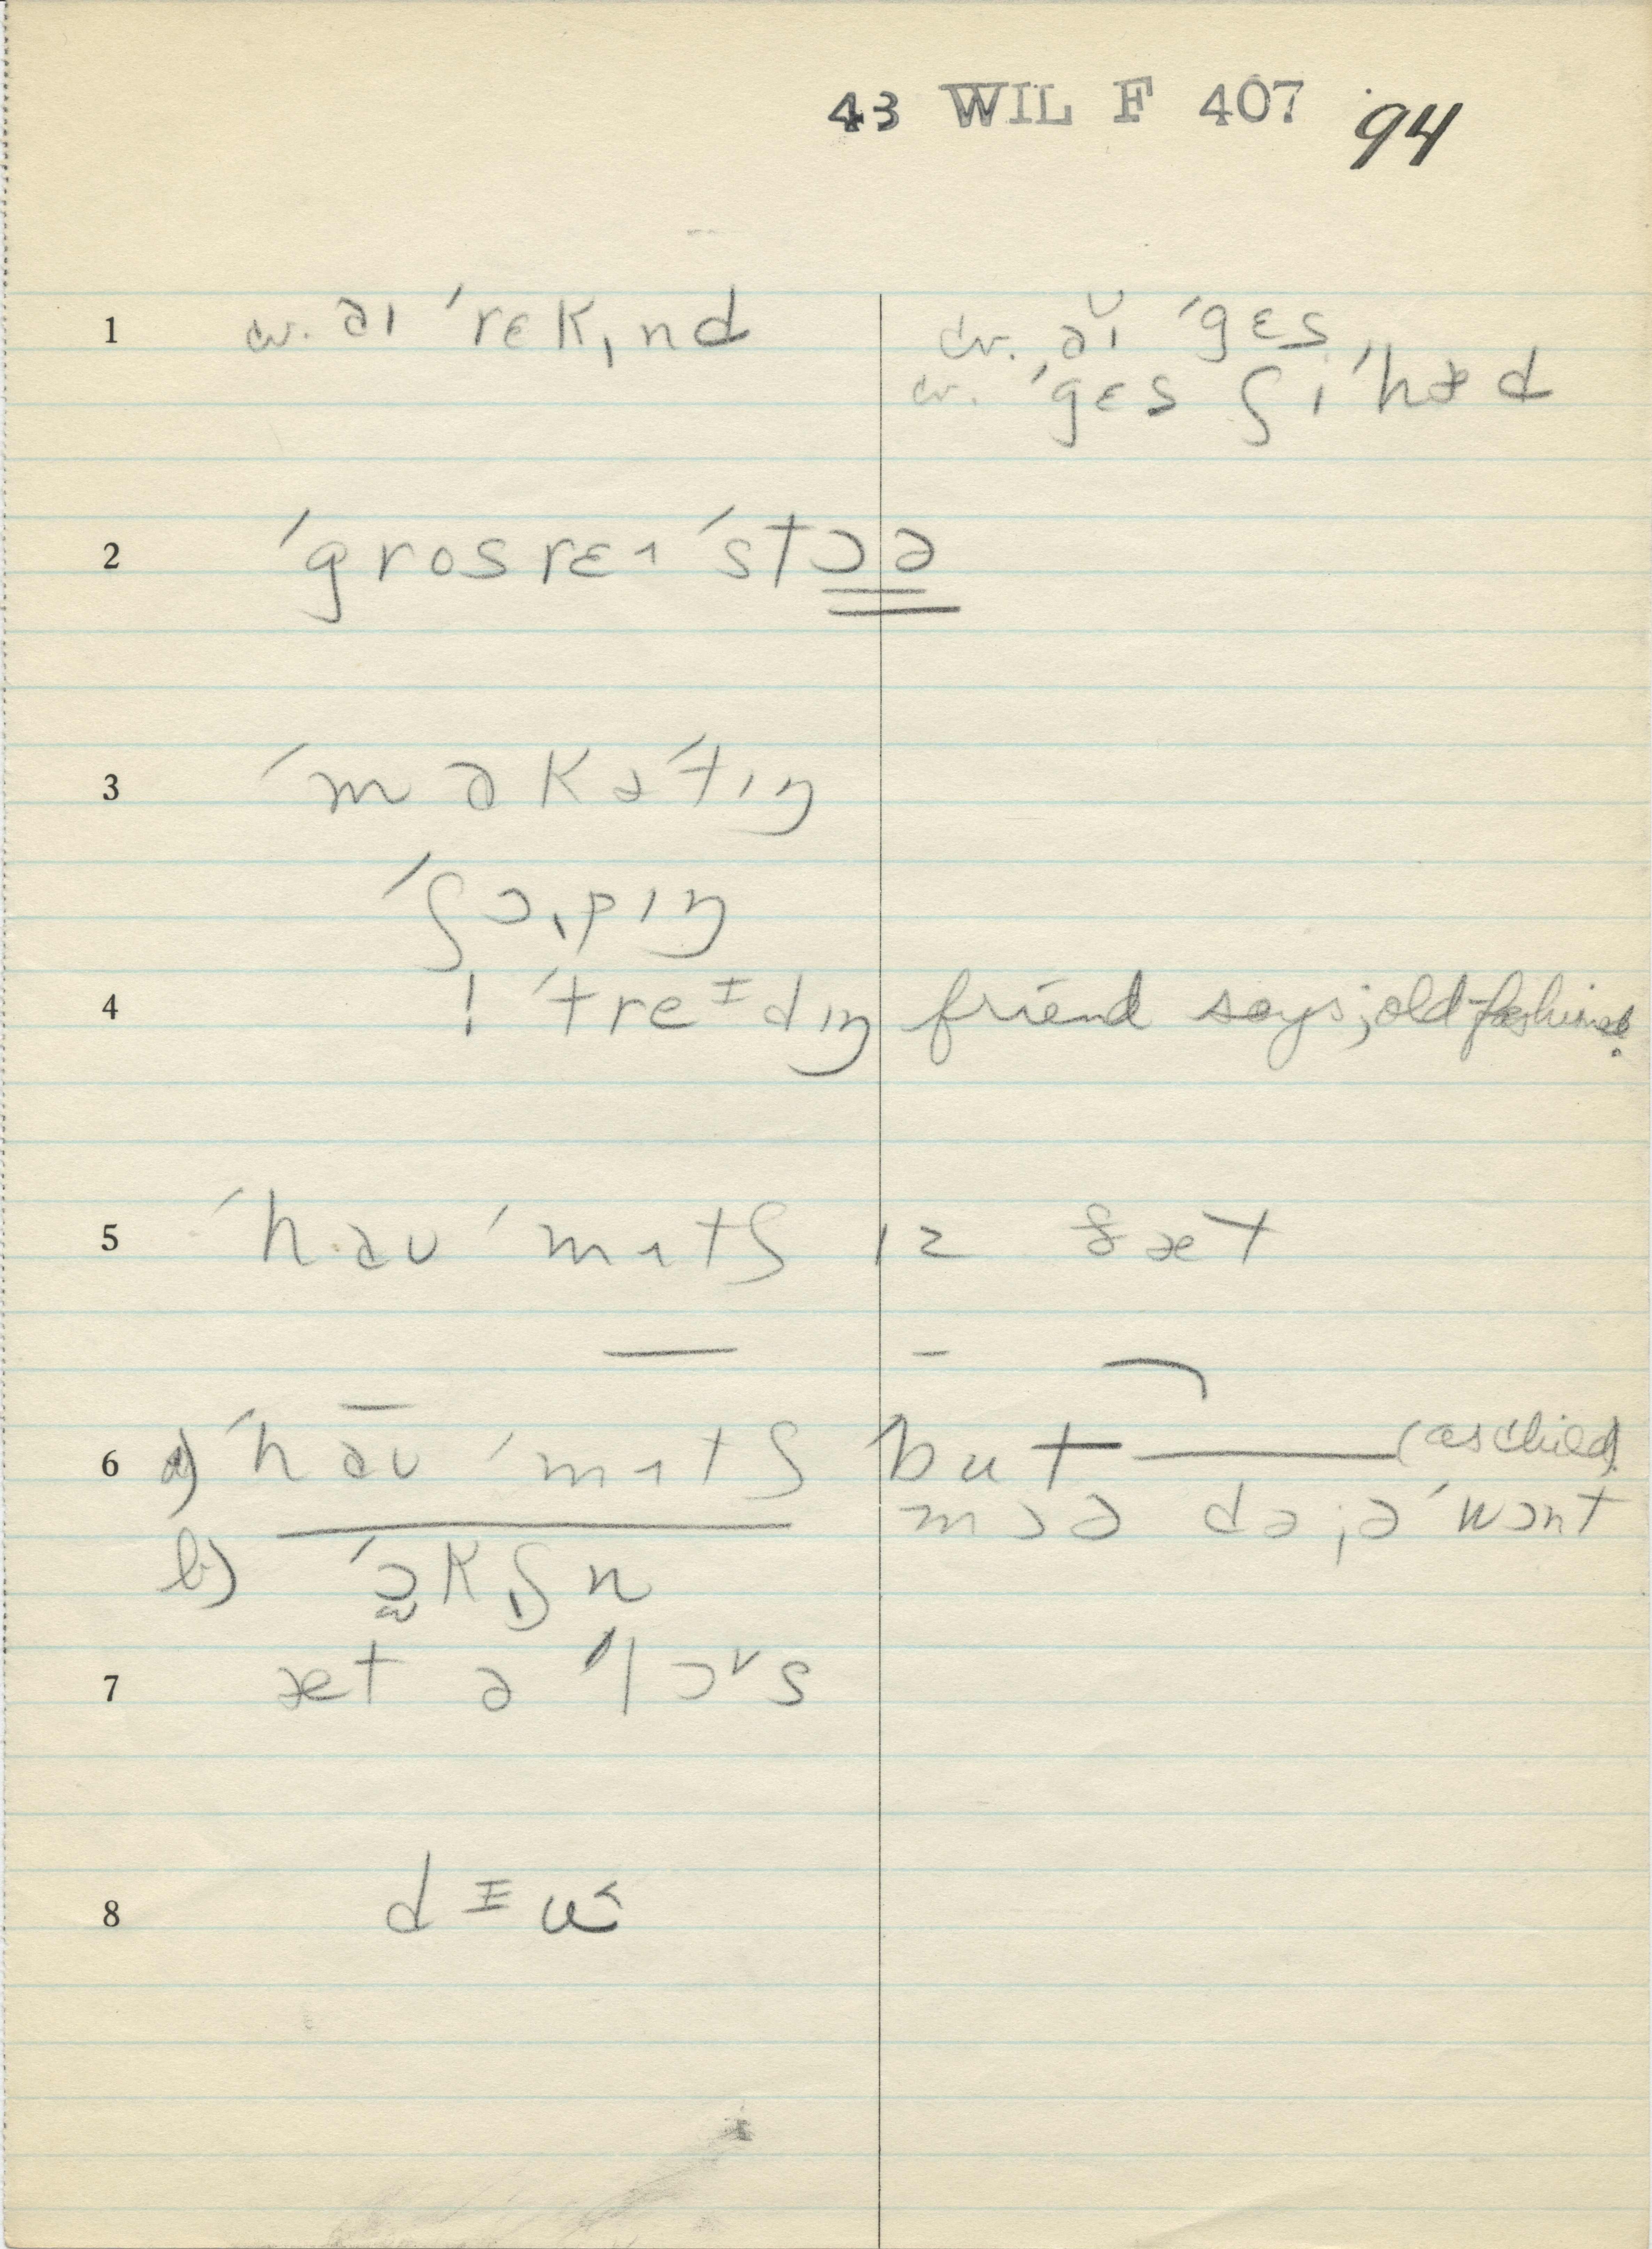 43 WIL F 407 94
1 cv. əɪ ˈrɛkɪnd cv. ə̆ɪ ˈgɛs
cv. ˈgɛs ʃɪ ˈhæd
2 ˈgrosrɛɪ ˈstɔə
3 ˈmakətɪŋ
ˈʃɔ.pɪŋ
4 ! ˈtreɪdɪŋ friend says; old-fashioned.
5 ˈhəu ˈmɪtʃ ɪz ðæt
6 a) ˈhəu ˈmɪtʃ but (as child)
mɔə də; ə ˈwɔnt
b) ˈɔkʃn
7 æt ə ˈlɔ s
8 dɪu